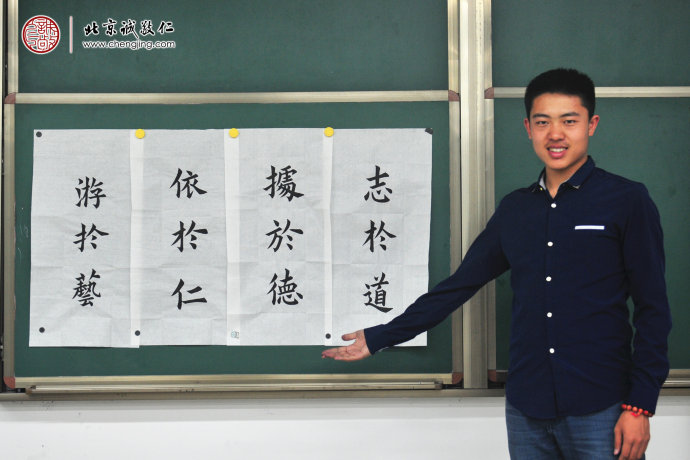 北京诚敬仁
www.chengjing.com
志於道
據於德
依於仁
游於藝